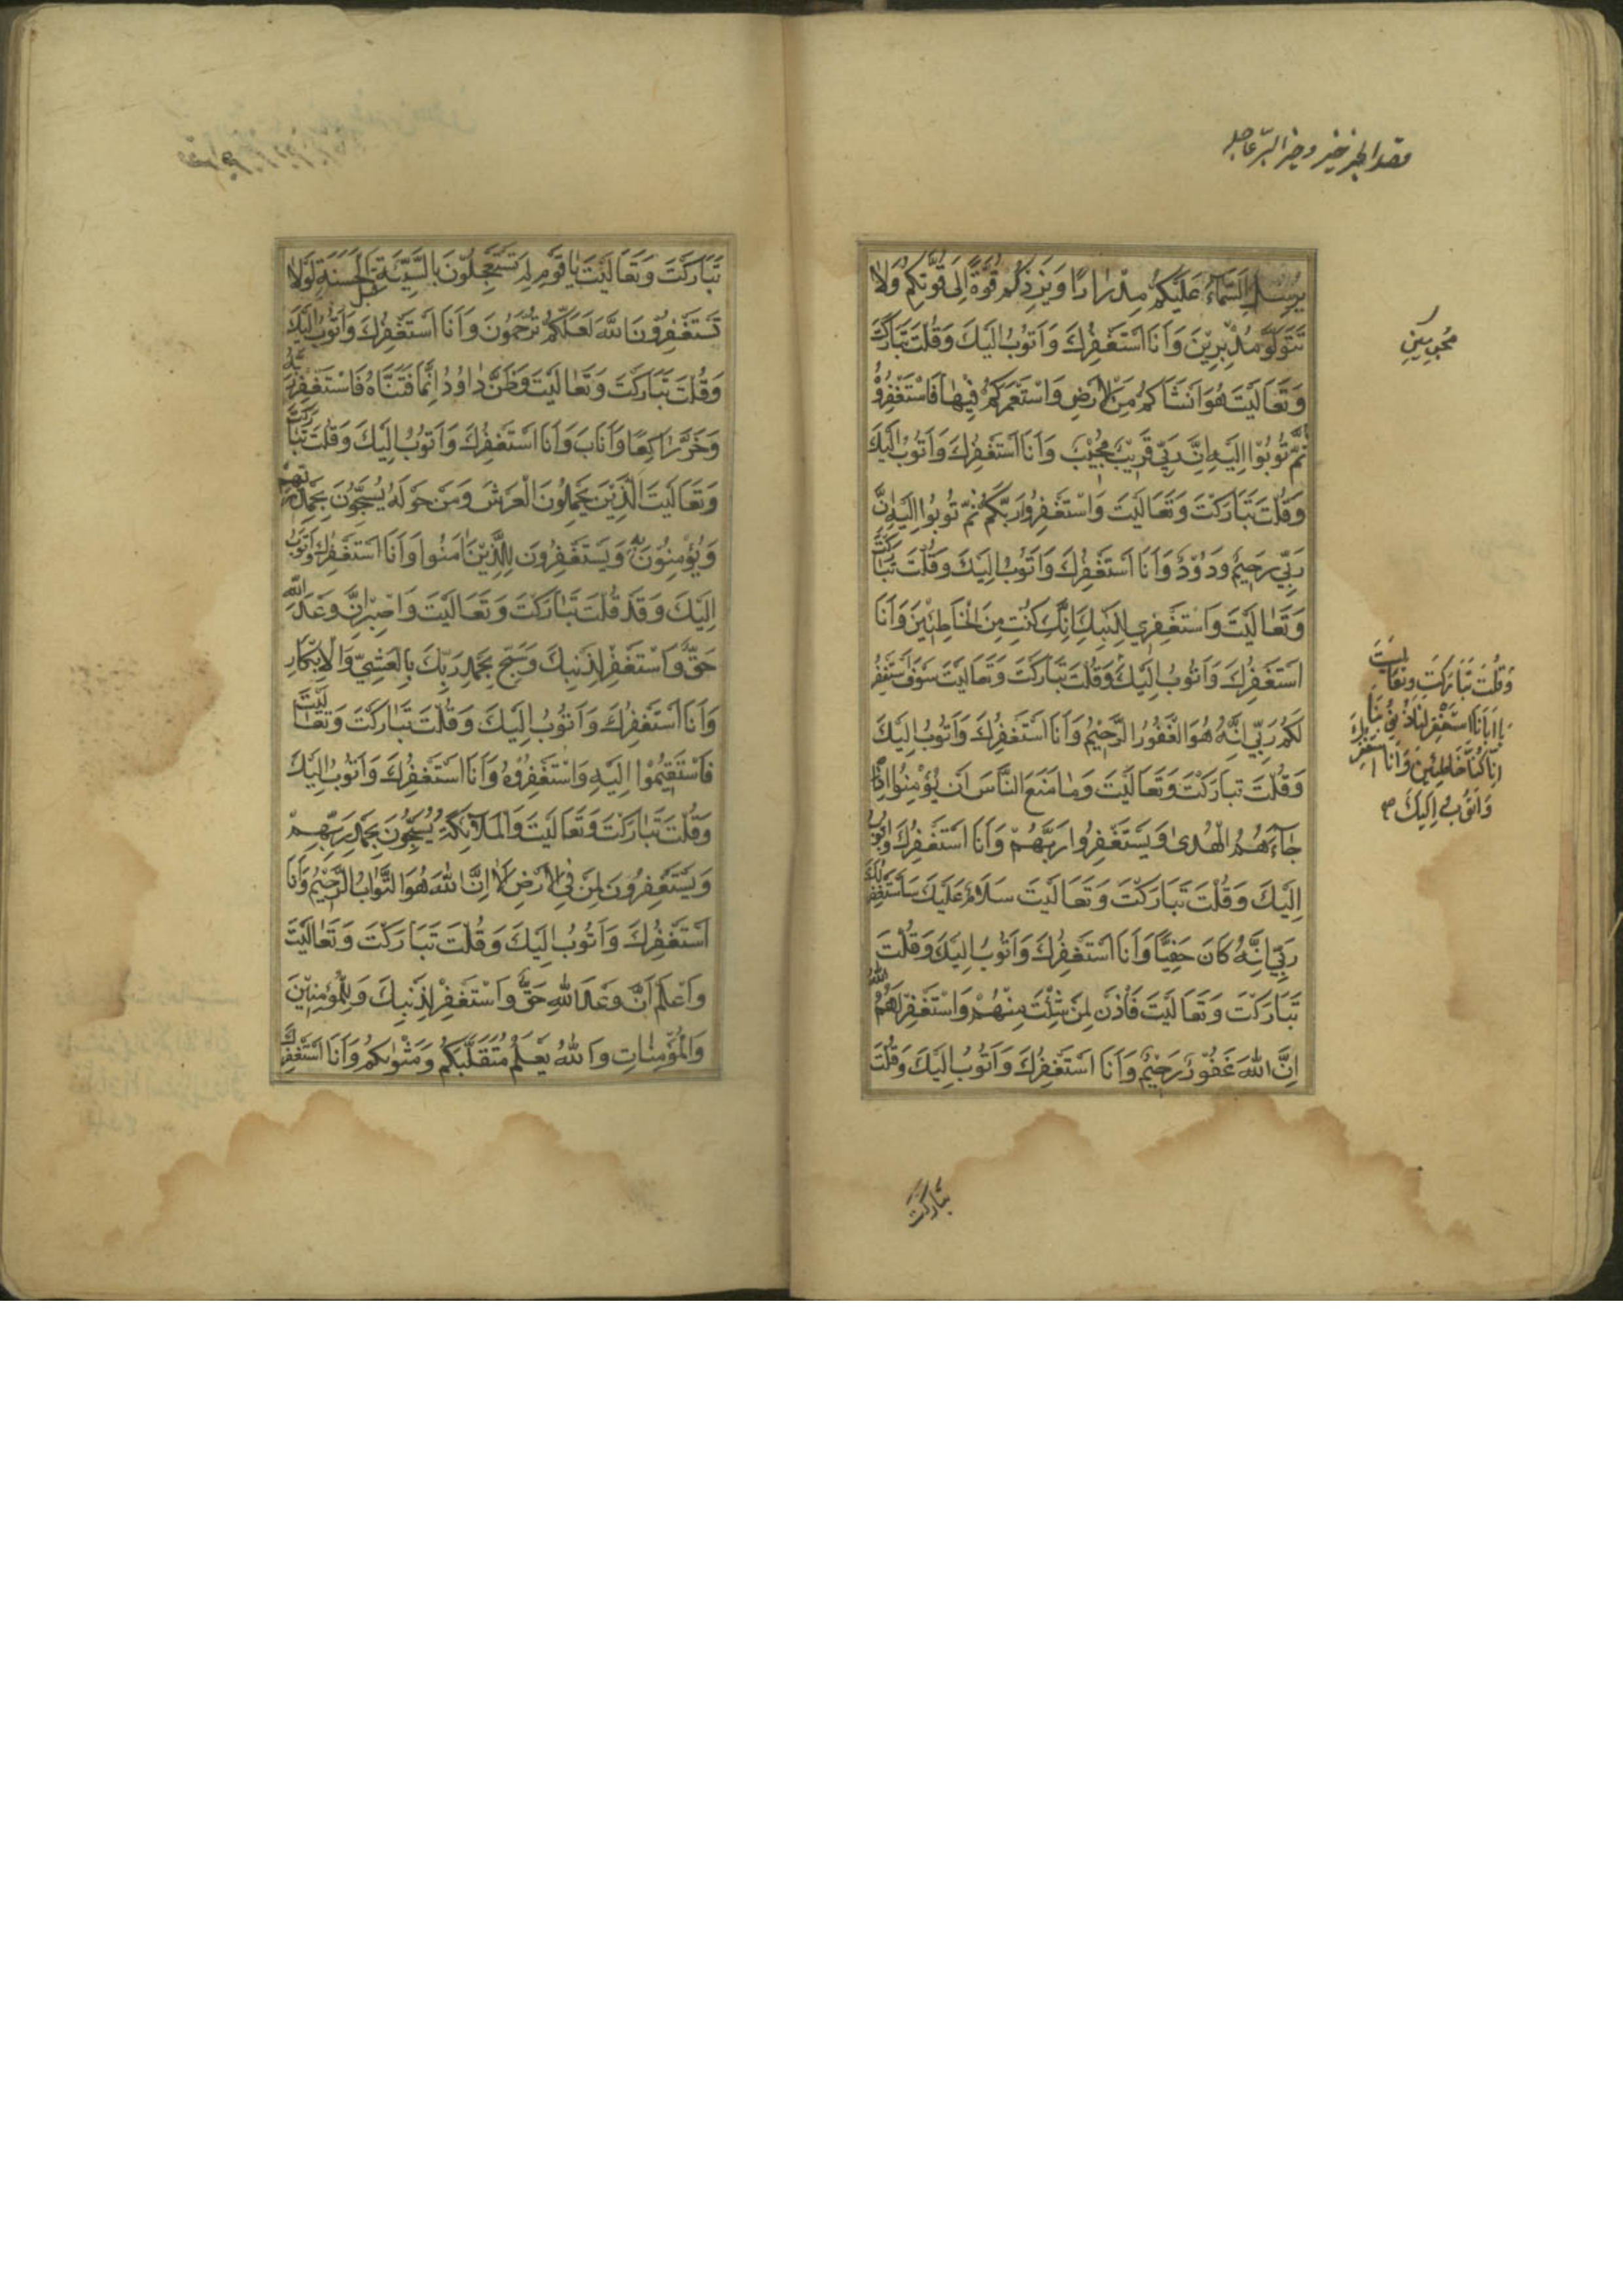 يُرْسِلِ السَّمَاءَ عَلَيْكُمْ مِدْرَارًا وَيَزِدْكُمْ قُوَّةً إِلَى قُوَّتِكُمْ وَلَا
تَتَوَلَّوْ مُدْبِرِيْنَ وَاَنَا اَسْتَغْفِرُكَ وَاَتُوْبُ اِلَيْكَ وَقُلْتَ تَبَارَكْتَ
وَتَعَالَيْتَ هُوَ اَنْشَاَكُمْ مِنَ الْاَرْضِ وَاسْتَعْمَرَكُمْ فِيْهَا فَاسْتَغْفِرُوْهُ
ثُمَّ تُوْبُوْا اِلَيْهِ اِنَّ رَبِّي قَرِيْبٌ مُجِيْبٌ وَاَنَا اَسْتَغْفِرُكَ وَاَتُوْبُ اِلَيْكَ
وَقُلْتَ تَبَارَكْتَ وَتَعَالَيْتَ وَاسْتَغْفِرُوا رَبَّكُمْ ثُمَّ تُوبُوا اِلَيْهِ اِنَّ
رَبِّي رَحِيْمٌ وَدُوْدٌ وَاَنَا اَسْتَغْفِرُكَ وَاَتُوْبُ اِلَيْكَ وَقُلْتَ تَبَارَكْتَ
وَتَعَالَيْتَ وَاسْتَغْفِرِي لِذَنْبِكِ اِنَّكِ كُنْتِ مِنَ الْخَاطِئِيْنَ وَاَنَا
اَسْتَغْفِرُكَ وَاَتُوْبُ اِلَيْكَ وَقُلْتَ تَبَارَكْتَ وَتَعَالَيْتَ سَوْفَ اَسْتَغْفِرُ
لَكُمْ رَبِّي اِنَّهُ هُوَ الْغَفُوْرُ الرَّحِيْمُ وَاَنَا اَسْتَغْفِرُكَ وَاَتُوْبُ اِلَيْكَ
وَقُلْتَ تَبَارَكْتَ وَتَعَالَيْتَ وَمَا مَنَعَ النَّاسَ اَنْ يُؤْمِنُوا اِذْ
جَاءَهُمُ الْهُدَى وَيَسْتَغْفِرُوا رَبَّهُمْ وَاَنَا اَسْتَغْفِرُكَ وَاَتُوْبُ
اِلَيْكَ وَقُلْتَ تَبَارَكْتَ وَتَعَالَيْتَ سَلَامٌ عَلَيْكَ سَاَسْتَغْفِرُ لَكَ
رَبِّي اِنَّهُ كَانَ حَفِيًّا وَاَنَا اَسْتَغْفِرُكَ وَاَتُوْبُ اِلَيْكَ وَقُلْتَ
تَبَارَكْتَ وَتَعَالَيْتَ فَأْذَنْ لِمَنْ شِئْتَ مِنْهُمْ وَاسْتَغْفِرْ لَهُمُ اللّٰهَ
اِنَّ اللّٰهَ غَفُوْرٌ رَحِيْمٌ وَاَنَا اَسْتَغْفِرُكَ وَاَتُوْبُ اِلَيْكَ وَقُلْتَ
وَقُلْتَ تَبَارَكْتَ وَتَعَالَيْتَ
يَا اَبَانَا اسْتَغْفِرْ لَنَا ذُنُوْبَنَا
اِنَّا كُنَّا خَاطِئِيْنَ وَاَنَا اَسْتَغْفِرُكَ
وَاَتُوْبُ اِلَيْكَ
تَبَارَكْتَ
تَبَارَكْتَ وَتَعَالَيْتَ يَا قَوْمِ لِمَ تَسْتَعْجِلُوْنَ بِالسَّيِّئَةِ قَبْلَ الْحَسَنَةِ لَوْلَا
تَسْتَغْفِرُوْنَ اللّٰهَ لَعَلَّكُمْ تُرْحَمُوْنَ وَاَنَا اَسْتَغْفِرُكَ وَاَتُوْبُ اِلَيْكَ
وَقُلْتَ تَبَارَكْتَ وَتَعَالَيْتَ وَظَنَّ دَاوُدُ اَنَّمَا فَتَنَّاهُ فَاسْتَغْفَرَ رَبَّهُ
وَخَرَّ رَاكِعًا وَاَنَابَ وَاَنَا اَسْتَغْفِرُكَ وَاَتُوْبُ اِلَيْكَ وَقُلْتَ تَبَارَكْتَ
وَتَعَالَيْتَ اَلَّذِيْنَ يَحْمِلُوْنَ الْعَرْشَ وَمَنْ حَوْلَهُ يُسَبِّحُوْنَ بِحَمْدِ رَبِّهِمْ
وَيُؤْمِنُوْنَ بِهِ وَيَسْتَغْفِرُوْنَ لِلَّذِيْنَ اٰمَنُوا وَاَنَا اَسْتَغْفِرُكَ وَاَتُوْبُ
اِلَيْكَ وَقَدْ قُلْتَ تَبَارَكْتَ وَتَعَالَيْتَ وَاصْبِرْ اِنَّ وَعْدَ اللّٰهِ
حَقٌّ وَاسْتَغْفِرْ لِذَنْبِكَ وَسَبِّحْ بِحَمْدِ رَبِّكَ بِالْعَشِيِّ وَالْاِبْكَارِ
وَاَنَا اَسْتَغْفِرُكَ وَاَتُوْبُ اِلَيْكَ وَقُلْتَ تَبَارَكْتَ وَتَعَالَيْتَ
فَاسْتَقِيْمُوْا اِلَيْهِ وَاسْتَغْفِرُوْهُ وَاَنَا اَسْتَغْفِرُكَ وَاَتُوْبُ اِلَيْكَ
وَقُلْتَ تَبَارَكْتَ وَتَعَالَيْتَ وَالْمَلَائِكَةُ يُسَبِّحُوْنَ بِحَمْدِ رَبِّهِمْ
وَيَسْتَغْفِرُوْنَ لِمَنْ فِي الْاَرْضِ اَلَا اِنَّ اللّٰهَ هُوَ التَّوَّابُ الرَّحِيْمُ وَاَنَا
اَسْتَغْفِرُكَ وَاَتُوْبُ اِلَيْكَ وَقُلْتَ تَبَارَكْتَ وَتَعَالَيْتَ
وَاعْلَمْ اَنَّ وَعْدَ اللّٰهِ حَقٌّ وَاسْتَغْفِرْ لِذَنْبِكَ وَلِلْمُؤْمِنِيْنَ
وَالْمُؤْمِنَاتِ وَاللّٰهُ يَعْلَمُ مُتَقَلَّبَكُمْ وَمَثْوٰىكُمْ وَاَنَا اَسْتَغْفِرُكَ